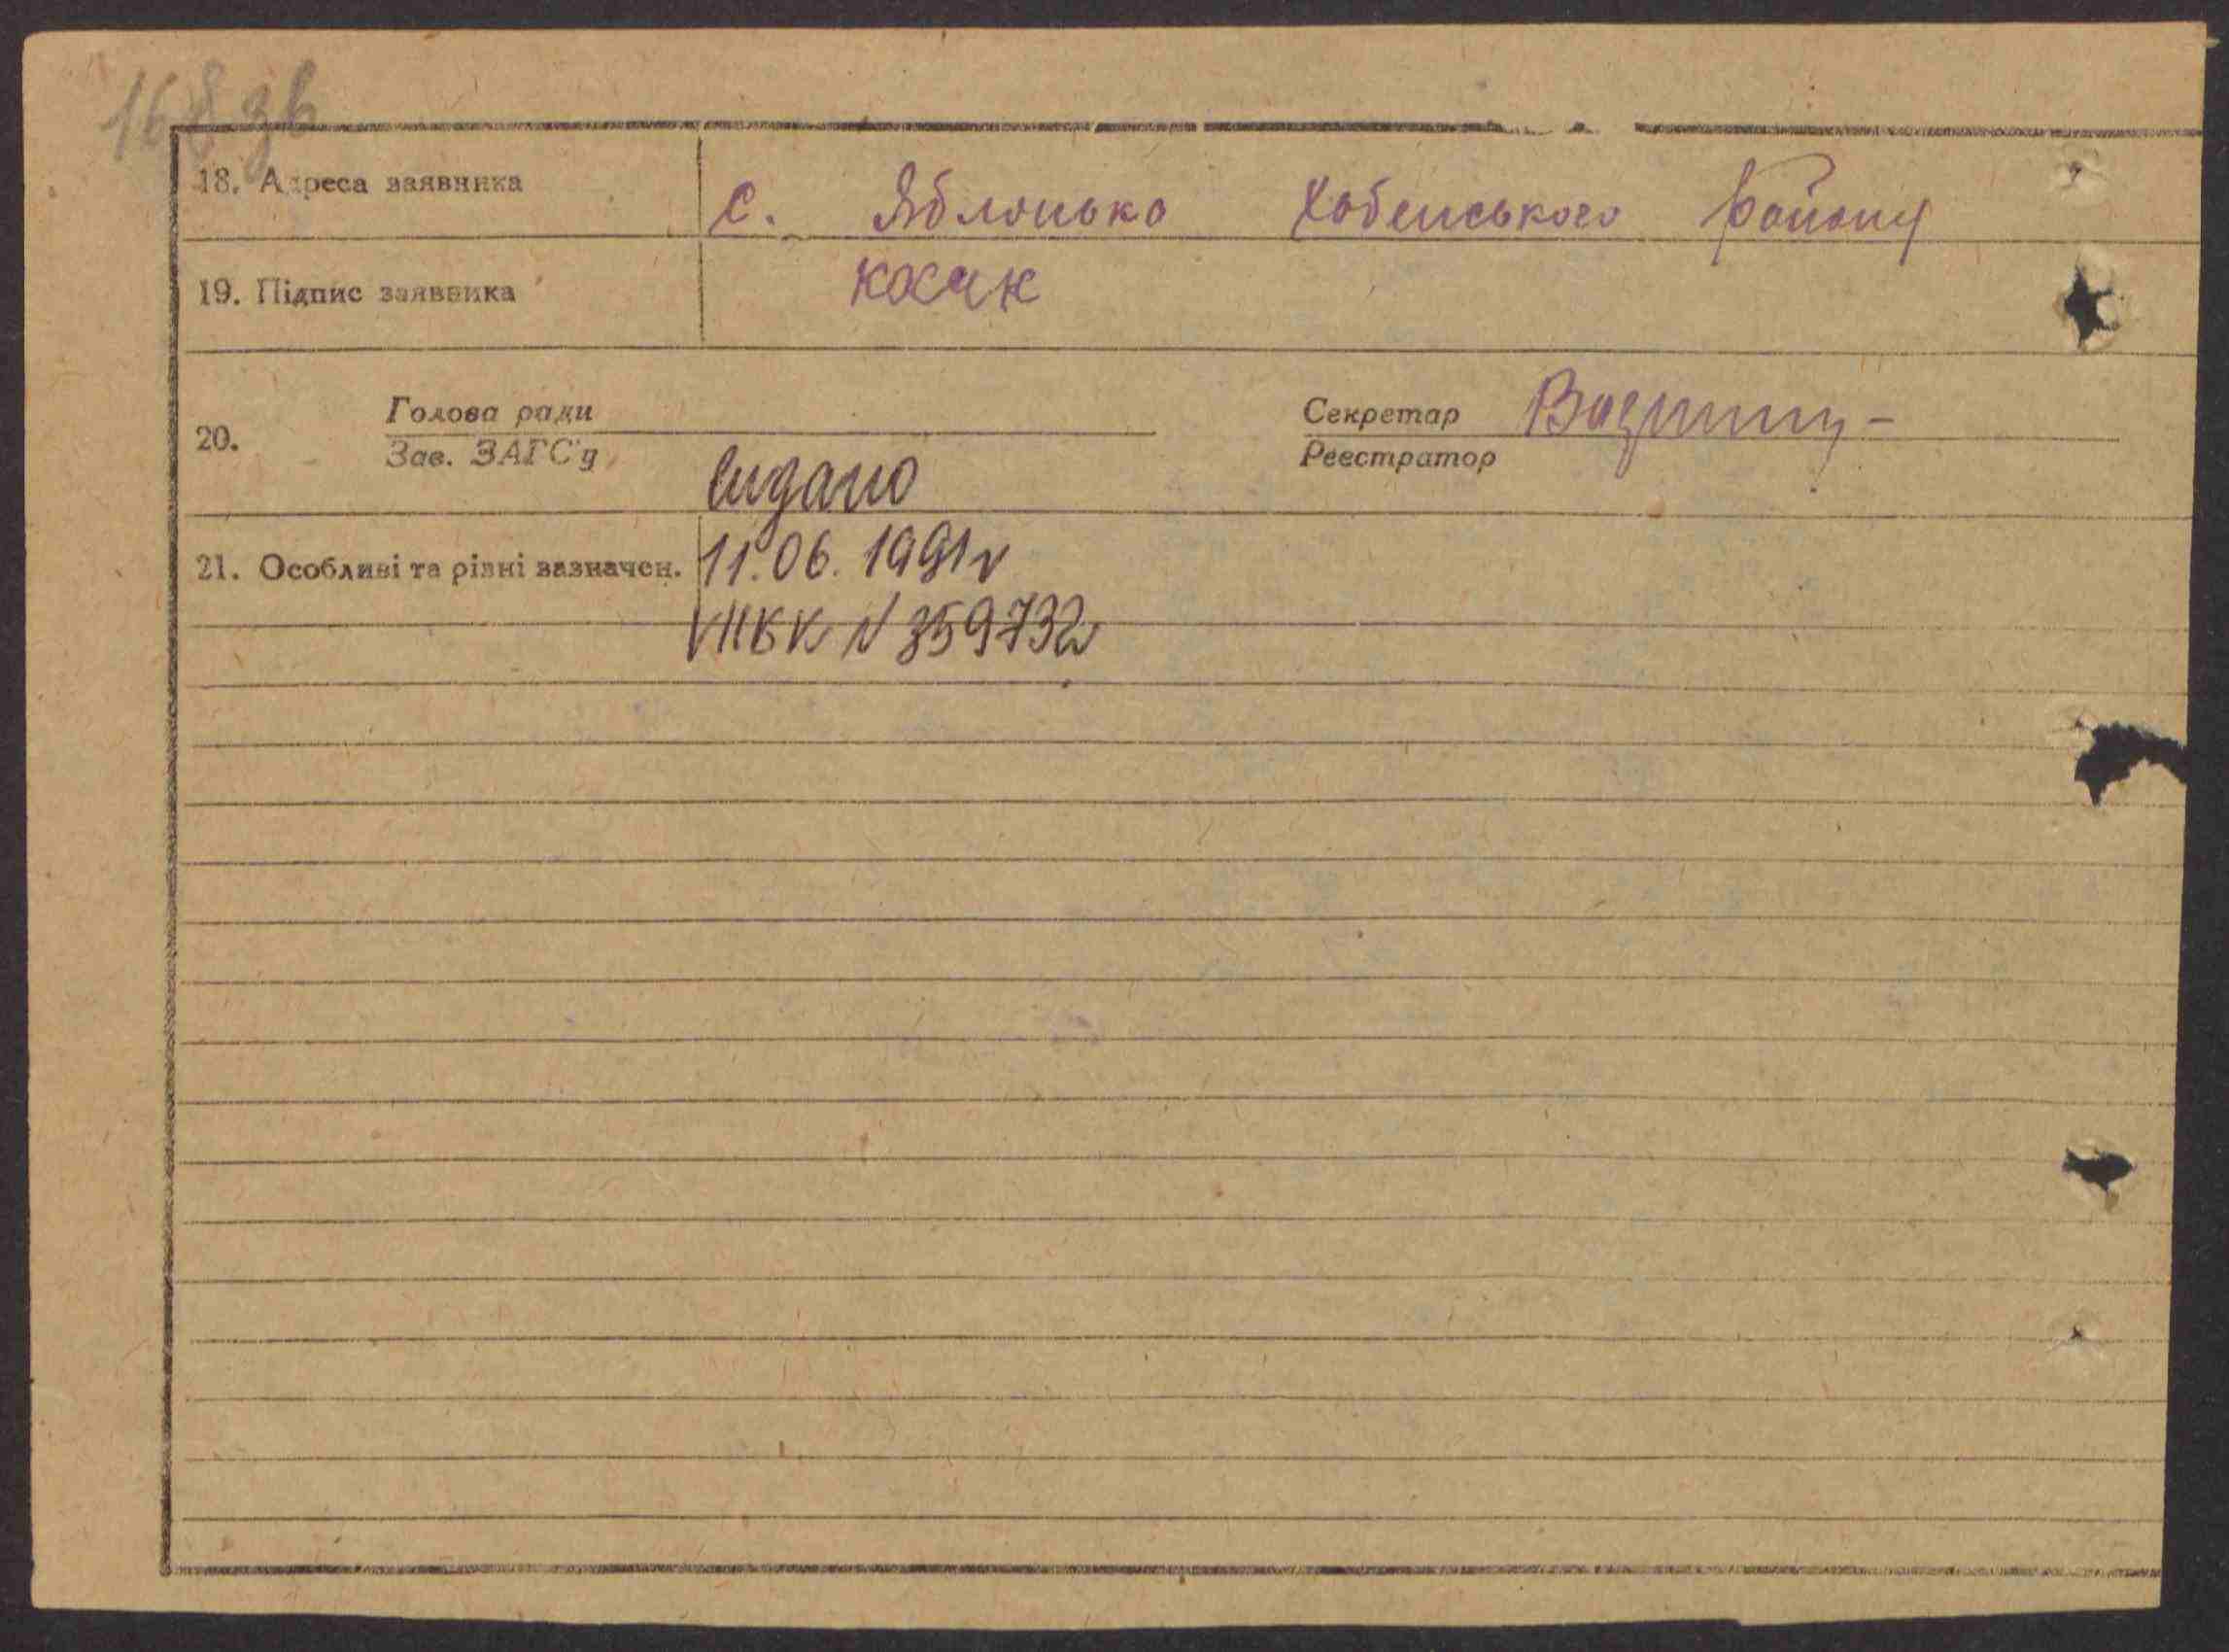 168 зв
18. Адреса заявника с. Яблонька Хабенського району
19. Підпис заявника Косак
20. Голова ради Секретар
Зав. ЗАГС'у Реестратор
видано
21. Особливі та різні зазначен. 11.06.1991г
VIIБК N 359732